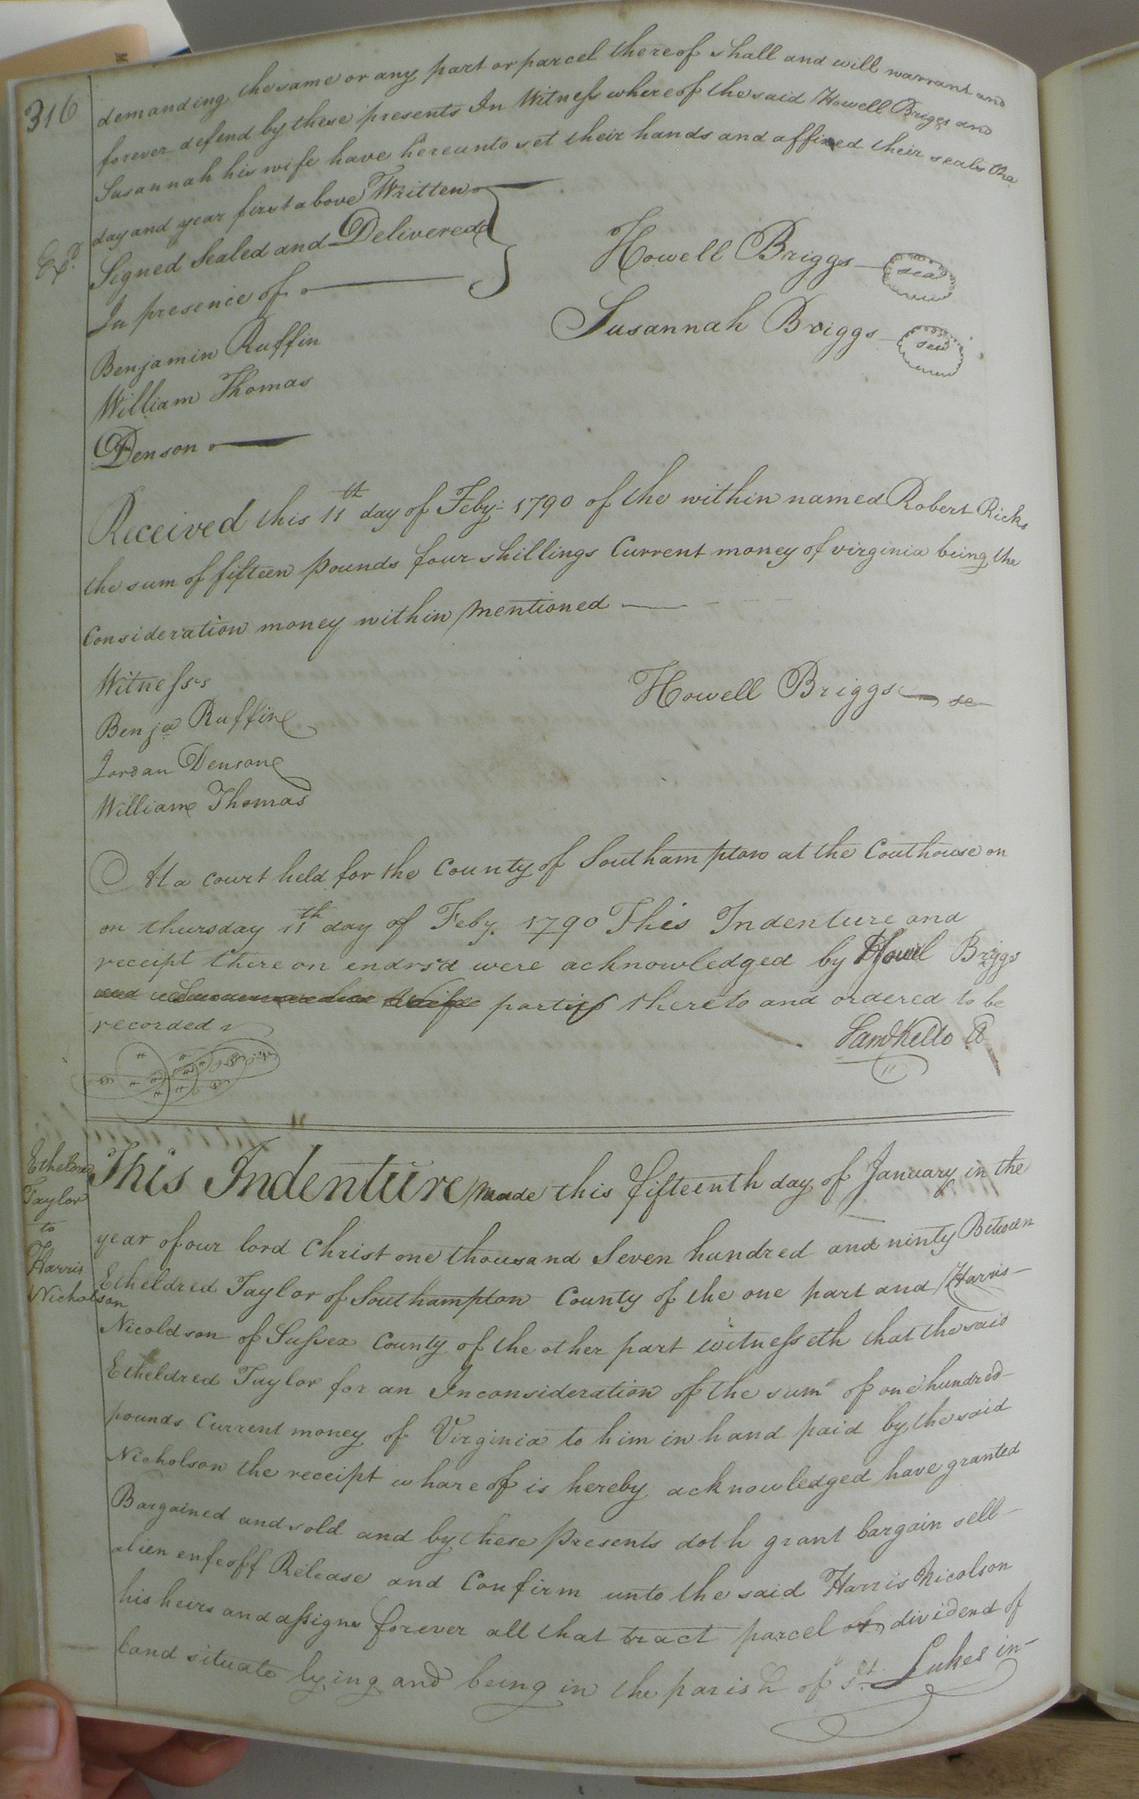 316
demanding the same or any part or parcel thereof shall and will warrant and
forever defend by these presents In Witness whereof the said Howell Briggs and
Susannah his wife have hereunto set their hands and affixed their seals the
day and year first above Written
Signed Sealed and Delivered
In presence of
Howell Briggs seal
Susannah Briggs seal
Benjamin Ruffin
William Thomas
Denson
Received this 11th day of Feby: 1790 of the within named Robert Ricks
the sum of fifteen pounds four shillings Current money of virginia being the
Consideration money within mentioned
Witnesses
Howell Briggs
Benja Ruffin
Jordan Denson
William Thomas
At a court held for the County of Southampton at the Couthouse on
on thursday 11th day of Feby. 1790 This Indenture and
receipt there on endrs'd were acknowledged by Howel Briggs
parties thereto and ordered to be
recorded
Saml Kello
Etheldred
Taylor
to
Harris
Nicholson
This Indenture made this fifteenth day of January in the
year of our lord Christ one thousand Seven hundred and ninty Between
Etheldred Taylor of Southampton County of the one part and Harris
Nicoldson of Sussex County of the other part witnesseth that the said
Etheldred Taylor for an Inconsideration of the sum of one hundred
pounds Current money of Virginia to him in hand paid by the said
Nicholson the receipt whareof is hereby acknowledged have granted
Bargained and sold and by these presents doth grant bargain sell
alien enfeoff Release and Confirm unto the said Harris Nicolson
his heirs and assigns forever all that tract parcel or dividend of
land situate lying and being in the parish of St. Lukes in